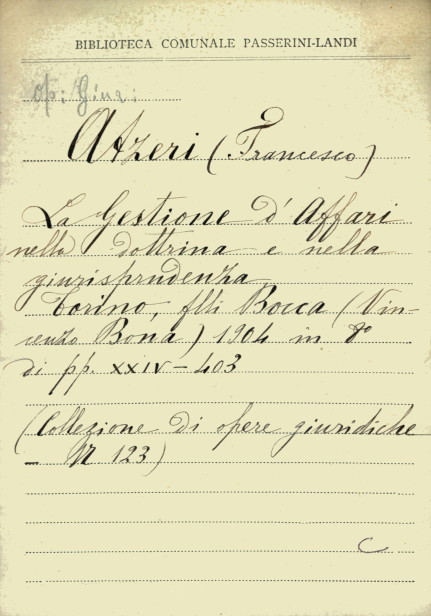 BIBLIOTECA COMUNALE PASSERINI-LANDI
Op: Giur:
Atzeri (Francesco)
La Gestione d'Affari
nella dottrina e nella
giurisprudenza
Torino, flli Bocca (Vin-
cenzo Bona) 1904 in 8º
di pp. XXIV-403
(Collezione di opere giuridiche
- N 123)
C